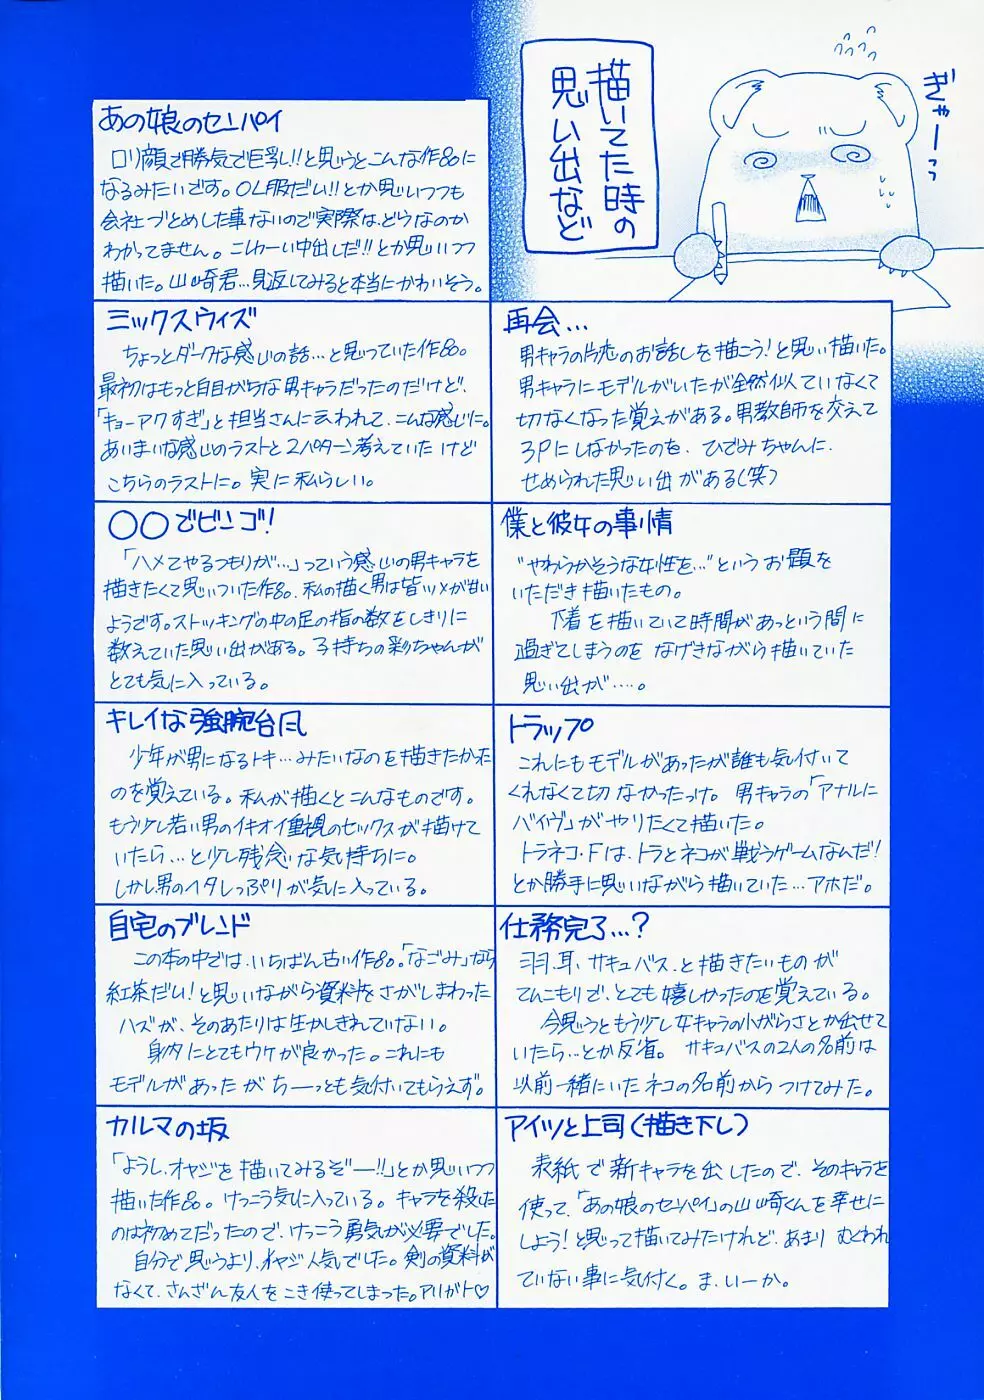 描いてた時の
思い出など
ぎゃーっっ
あの娘のセンパイ
ロリ顔で勝気で巨乳!!と思うとこんな作品に
なるみたいです。OL服だい!!とか思いつつも
会社づとめした事ないので実際は、どうなのか
わかってません。こしカーい中出しだ!!とか思いつつ
描いた。山崎君…見返してみると本当にかわいそう。
ミックスウィズ
ちょっとダークな感じの話…と思っていた作品。
最初はもっと自目がちな男キャラだったのだけど、
「キョーアクすぎ」と担当さんに云われて、こんな感じに。
あいまいな感じのラストと2パターン考えていたけど
こちらのラストに。実に私らしい。
〇〇でビンゴ!
「ハメてやるつもりが…」っていう感じの男キャラを
描きたくて思いついた作品。私の描く男は皆ツメが甘い
ようです。ストッキングの中の足の指の数をしきりに
数えていた思い出がある。子持ちの彩ちゃんが
とても気に入っている。
キレイな強腕台風
少年が男になるトキ…みたいなのを描きたかった
のを覚えている。私が描くとこんなものです。
もう少し若い男のイキオイ重視のセックスが描けて
いたら…と少し残念な気持ちに。
しかし男のヘタレっぷりが気に入っている。
自宅のブレンド
この本の中では、いちばん古い作品。「なごみ」なら
紅茶だい!と思いながら資料をさがしまわった
ハズが、そのあたりは生かしきれていない。
身内にとてもウケが良かった。これにも
モデルがあったがちーっとも気付いてもらえず。
カルマの坂
「ようし、オヤジを描いてみるぞー!!」とか思いつつ
描いた作品。けっこう気に入っている。キャラを殺した
のは初めてだったので、けっこう勇気が必要でした。
自分で思うより、オヤジ人気でした。剣の資料が
なくて、さんざん友人をこき使ってしまった。アリガト♡
再会…
男キャラの片恋のお話しを描こう!と思い描いた。
男キャラにモデルがいたが全然似ていなくて
切なくなった覚えがある。男教師を交えて
3Pにしなかったのを、ひでみちゃんに、
せめられた思い出がある(笑)
僕と彼女の事情
“やわらかそうな女性を…”というお題を
いただき描いたもの。
下着を描いていて時間があっという間に
過ぎてしまうのをなげきながら描いていた
思い出が……。
トラップ
これにもモデルがあったが誰も気付いて
くれなくて切なかったっけ。男キャラの「アナルに
バイヴ」がやりたくて描いた。
トラネコ・Fは、トラとネコが戦うゲームなんだ!
とか勝手に思いながら描いていた…アホだ。
仕務完了…?
羽、耳、サキュバス、と描きたいものが
てんこもりで、とても嬉しかったのを覚えている。
今思うともう少し女キャラの小がらさとか出せて
いたら…とか反省。サキュバスの2人の名前は
以前一緒にいたネコの名前からつけてみた。
アイツと上司(描き下し)
表紙で新キャラを出したので、そのキャラを
使って、「あの娘のセンパイ」の山崎くんを幸せに
しよう!と思って描いてみたけれど、あまりむくわれ
ていない事に気付く。ま、いーか。